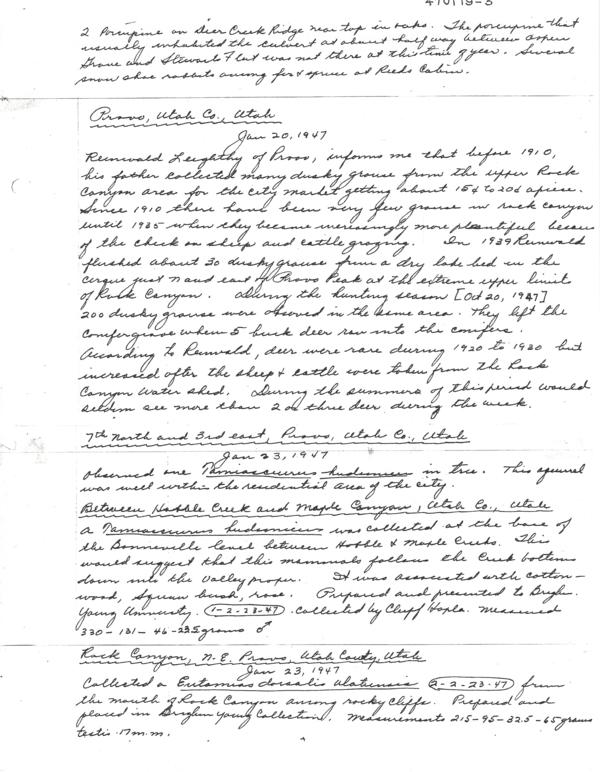 470119-3
2 Porcupine on Deer Creek Ridge near top in oaks. The porcupine that
usually inhabited the culvert at about half way between Aspen
Grove and Stewarts Flat was not there at this time of year. Several
snow shoe rabbits among fir & spruce at Reeds Cabin.
Provo, Utah Co., Utah
Jan 20, 1947
Reunwald Leighthy of Provo, informs me that before 1910,
his father collected many dusky grouse from the upper Rock
Canyon area for the city market getting about 15¢ to 20¢ apiece.
Since 1910 there have been very few grouse in rock canyon
until 1935 when they became increasingly more plentiful because
of the check on sheep and cattle grazing. In 1939 Reunwald
flushed about 30 dusky grouse from a dry lake bed in the
cirque just n and east of Provo Peak at the extreme upper limit
of Rock Canyon. During the hunting season [Oct 20, 1947]
200 dusky grouse were observed in the same area. They left the
conifer grove when 5 buck deer ran into the conifers.
According to Reunvald, deer were rare during 1920 to 1930 but
increased after the sheep & cattle were taken from the Rock
Canyon Water shed. During the summers of this period would
seldom see more than 2 or three deer during the week.
7th North and 3rd east, Provo, Utah Co., Utah
Jan 23, 1947
Observed one Tamiasciurus hudsonicus in tree. This squirrel
was well within the residential area of the city.
Between Hobble Creek and Maple Canyon, Utah Co., Utah
A Tamiasciurus hudsonicus was collected at the base of
the Bonneville level between Hobble & Maple Creeks. This
would suggest that this mammals follows the Creek bottoms
down into the valley proper. It was associated with cotton-
wood, squaw bush, rose. Prepared and presented to Brigham
Young University. 1-2-23-47. Collected by Cluff Hopla. Measured
330-131-46-235 grams ♂
Rock Canyon, N.E. Provo, Utah County, Utah
Jan 23, 1947
Collected a Eutamias dorsalis utahensis 2-2-23-47 from
the mouth of Rock Canyon among rocky cliffs. Prepared and
placed in Brigham Young Collection. Measurements 215-95-32.5-65 grams
testis 17 m.m.